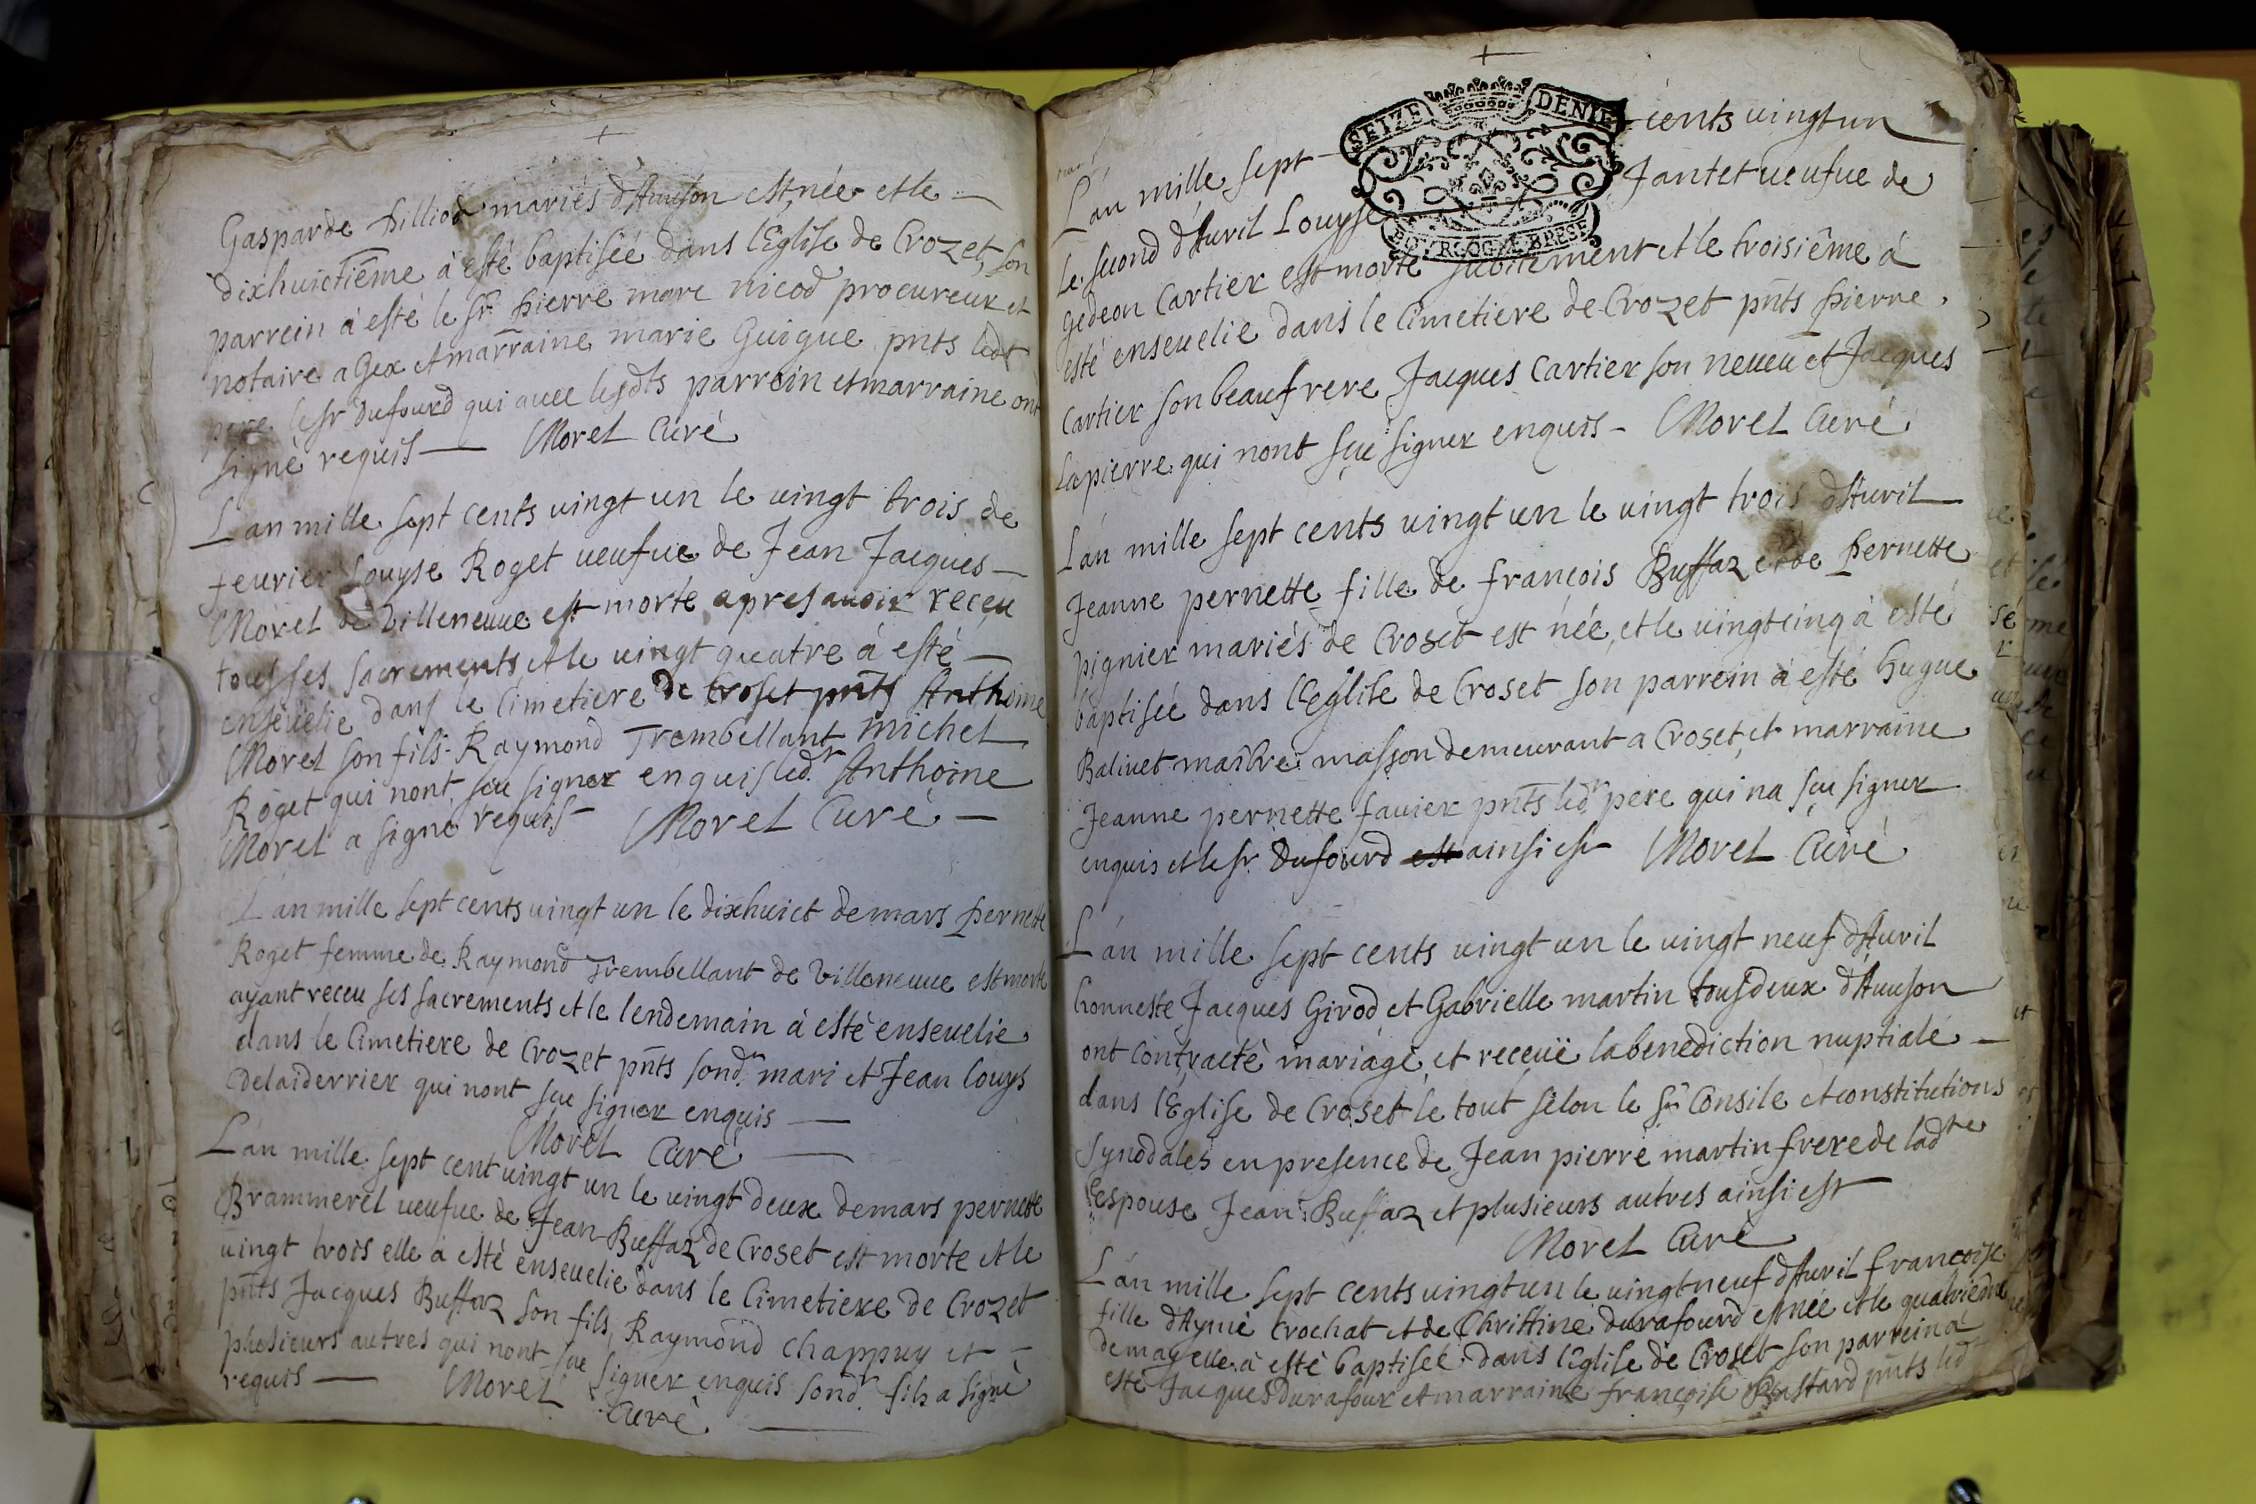 Gasparde Pilliod mariés d'Auuson est née et le
dixhuictiême à esté baptisée dans l'Eglise de Crozet, son
parrein à esté le Sr. Pierre marc nicod procureur et
notaire a Gex et marraine marie Guigue pnts ledt
pere le sr Dufourd qui auec lesdts parrein et marraine ont
signé requis — Morel Curé
L'an mille sept cents uingt un le uingt trois de
feurier Louyse Roget ueufue de Jean Jacques
Morel de Villeneuue est morte apres auoir receu
tous ses sacrements et le uingt quatre à esté
enseuelie dans le Cimetiere de Croset pnts Anthoine
Morel son fils Raymond Trembellant michel
Roget qui nont sçu signer enquis led.r Anthoine
Morel a signé requis Morel Curé —
L'an mille sept cents uingt un le dixhuict de mars Pernette
Roget femme de Raymond Trembellant de Villeneuue est morte
ayant receu ses sacrements et le lendemain à esté enseuelie
dans le Cimetiere de Crozet pnts sond.r mari et Jean Louys
Delaiderrier qui nont sçu signer enquis —
Morel Curé —
L'an mille sept cent uingt un le uingt deux de mars pernette
Brammerel ueufue de Jean Buffaz de Croset est morte et le
uingt trois elle à esté enseuelie dans le Cimetiere de Crozet
pnts Jacques Buffaz son fils, Raymond Chappuy et —
plusieurs autres qui nont sçu signer enquis sond.r fils a signé
requis — Morel Curé —
SEIZE DENIE
BOURGOG. BRESE
L'an mille sept cents uingt un
Le second d'Auril Louyse Jantet ueufue de
Gedeon Cartier est morte subitement et le troisiême à
esté enseuelie dans le Cimetiere de Crozet pnts Pierre
Cartier son beaufrere Jacques Cartier son neueu et Jacques
Lapierre qui nont sçu signer enquis - Morel Curé
L'an mille sept cents uingt un le uingt trois d'Auril
Jeanne pernette fille de françois Buffaz et de Pernette
pignier mariés de Croset est née, et le uingtcinq à esté
baptisée dans l'Eglise de Croset son parrein à esté Hugue
Baliuet maître masson demeurant a Croset, et marraine
Jeanne pernette fauier pnts led.r pere qui na sçu signer
enquis et le sr. Dufourd est ainsi est Morel Curé
L'an mille sept cents uingt un le uingt neuf d'Auril
honneste Jacques Girod et Gabrielle martin tous deux d'Auuson
ont contracté mariage, et receuë la benediction nuptiale —
dans l'Eglise de Croset le tout selon le St Consile et constitutions
synodales en presence de Jean pierre martin frere de ladtte
espouse Jean Buffaz et plusieurs autres ainsi est
Morel Curé
L'an mille sept cents uingt un le uingt neuf d'Auril françoise
fille d'Aymé Crochat et de Christine durafourd est née et le quatrieme
de may elle à esté baptisée dans l'Eglise de Croset son parrein à
esté Jacques durafour et marraine françoise Bastard pnts led